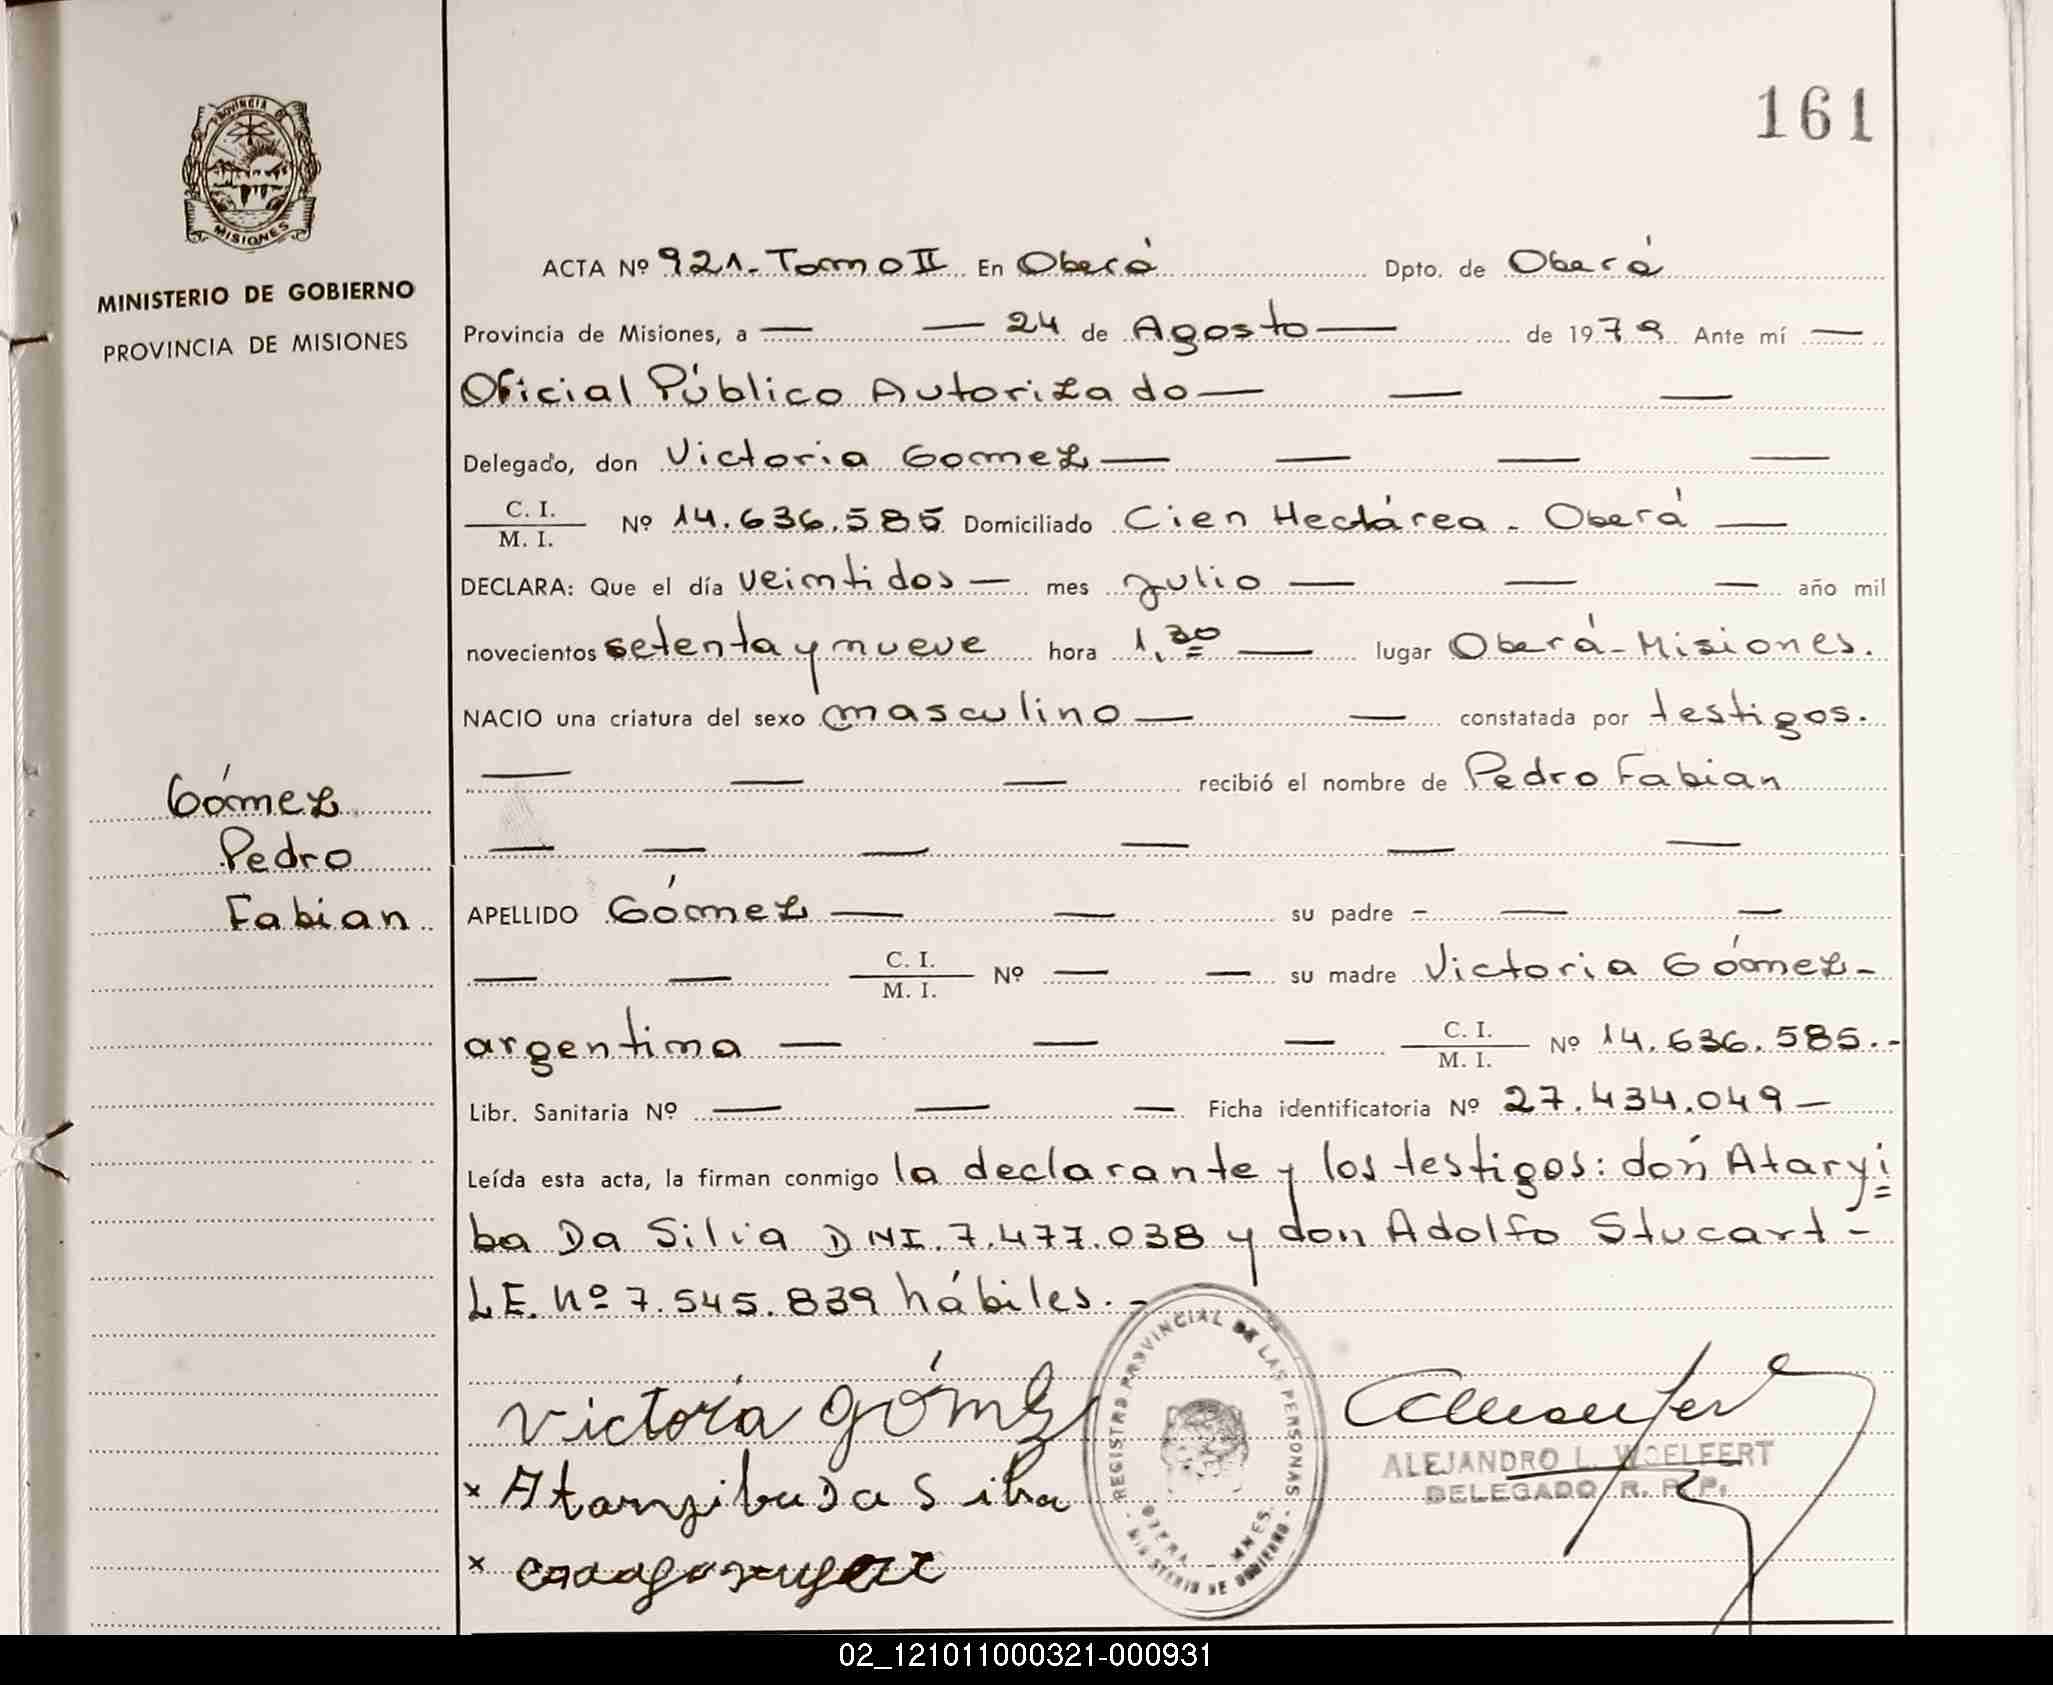 161
PROVINCIA
MISIONES
MINISTERIO DE GOBIERNO
PROVINCIA DE MISIONES
ACTA Nº 921-Tomo II En Oberá Dpto. de Oberá
Provincia de Misiones, a — — 24 de Agosto — de 1979 Ante mí —
Oficial Público Autorizado — — —
Delegado, don Victoria Gomez — — — —
C. I. / M. I. Nº 14.636.585 Domiciliado Cien Hectárea - Oberá —
DECLARA: Que el día veintidos — mes Julio — — — año mil
novecientos setenta y nueve hora 1,30 — lugar Oberá-Misiones.
NACIO una criatura del sexo masculino — — constatada por testigos.
— — — recibió el nombre de Pedro Fabian
— — — — — —
Gómez
Pedro
Fabian
APELLIDO Gómez — — su padre - — —
— — C. I. / M. I. Nº — — su madre Victoria Gómez-
argentina — — — C. I. / M. I. Nº 14.636.585.-
Libr. Sanitaria Nº — — — Ficha identificatoria Nº 27.434.049 —
Leída esta acta, la firman conmigo la declarante y los testigos: don Ataryi=
ba Da Silia DNI. 7.477.038 y don Adolfo Stucart -
LE. Nº 7.545.839 hábiles. -
Victoria Gómz
x Ataryiba Da Silva
x
REGISTRO PROVINCIAL DE LAS PERSONAS
OBERA - MNES.
- MINISTERIO DE GOBIERNO -
ALEJANDRO L. WOELFERT
DELEGADO R. P. P.
02_121011000321-000931